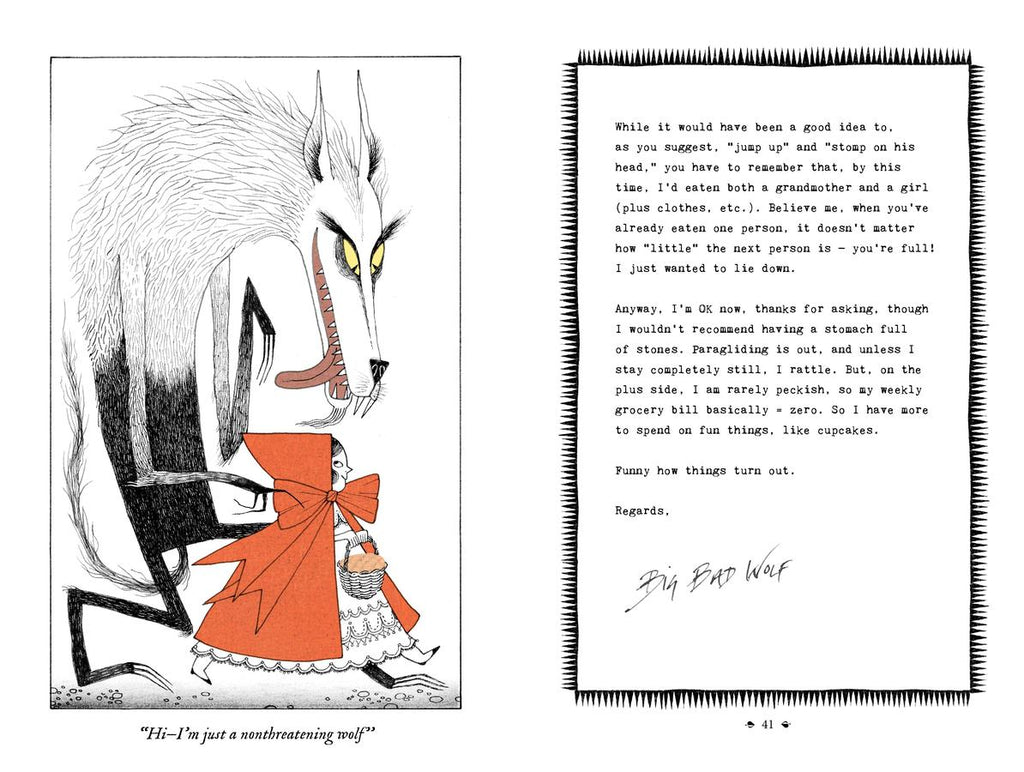 "Hi–I'm just a nonthreatening wolf"
While it would have been a good idea to,
as you suggest, "jump up" and "stomp on his
head," you have to remember that, by this
time, I'd eaten both a grandmother and a girl
(plus clothes, etc.). Believe me, when you've
already eaten one person, it doesn't matter
how "little" the next person is – you're full!
I just wanted to lie down.
Anyway, I'm OK now, thanks for asking, though
I wouldn't recommend having a stomach full
of stones. Paragliding is out, and unless I
stay completely still, I rattle. But, on the
plus side, I am rarely peckish, so my weekly
grocery bill basically = zero. So I have more
to spend on fun things, like cupcakes.
Funny how things turn out.
Regards,
Big Bad Wolf
41